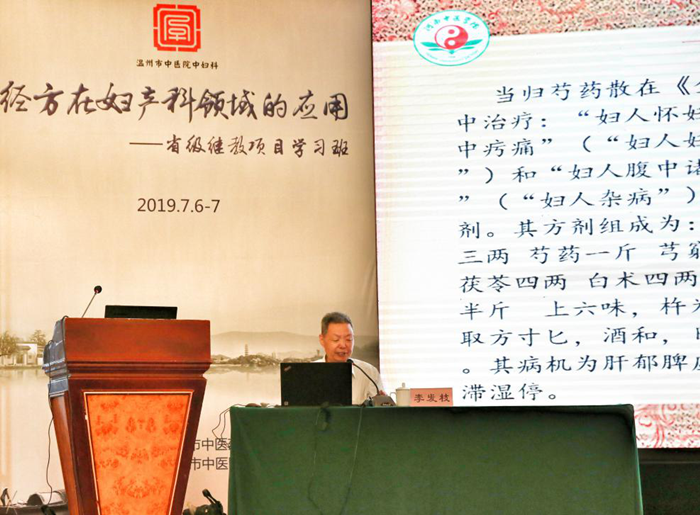 温州市中医院中妇科
经方在妇产科领域的应用
——省级继教项目学习班
2019.7.6-7
市中医
市中医
河南中医学院
当归芍药散在《
中治疗：“妇人怀妊
中疞痛”（“妇人妊
”）和“妇人腹中诸
”（“妇人杂病”）
剂。其方剂组成为：
三两 芍药一斤 芎䓖
茯苓四两 白术四两
半斤 上六味，杵为
取方寸匕，酒和，日
。其病机为肝郁脾虚
滞湿停。
李发枝